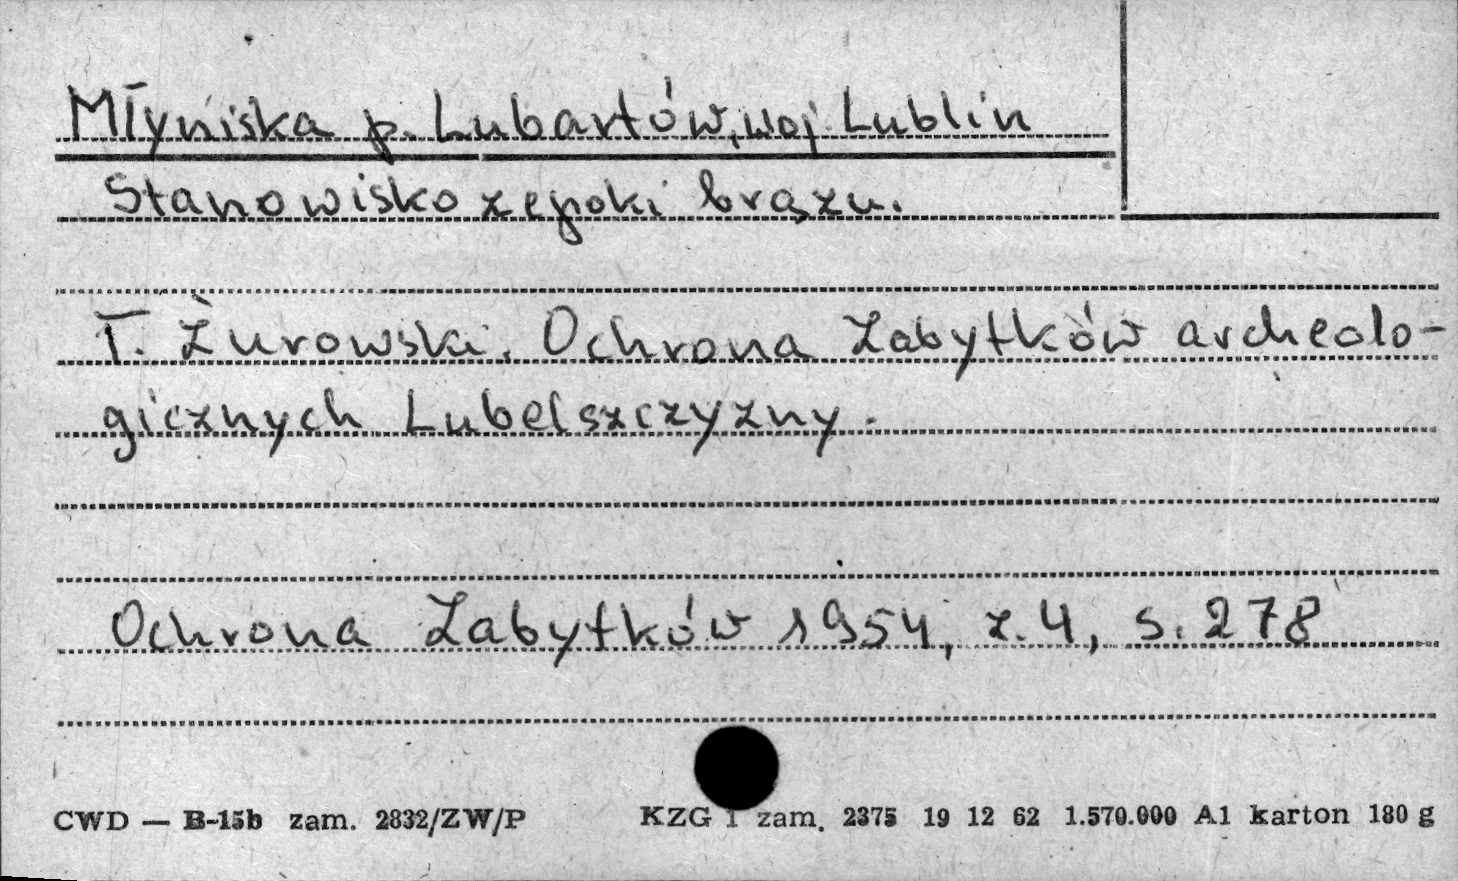 Młyniska p. Lubartów, woj. Lublin
Stanowisko z epoki brązu.
T. Żurowski. Ochrona Zabytków archeolo-
gicznych Lubelszczyzny.
Ochrona Zabytków 1954, z. 4, s. 278
CWD — B-15b zam. 2832/ZW/P KZG 1 zam. 2375 19 12 62 1.570.000 A1 karton 180 g